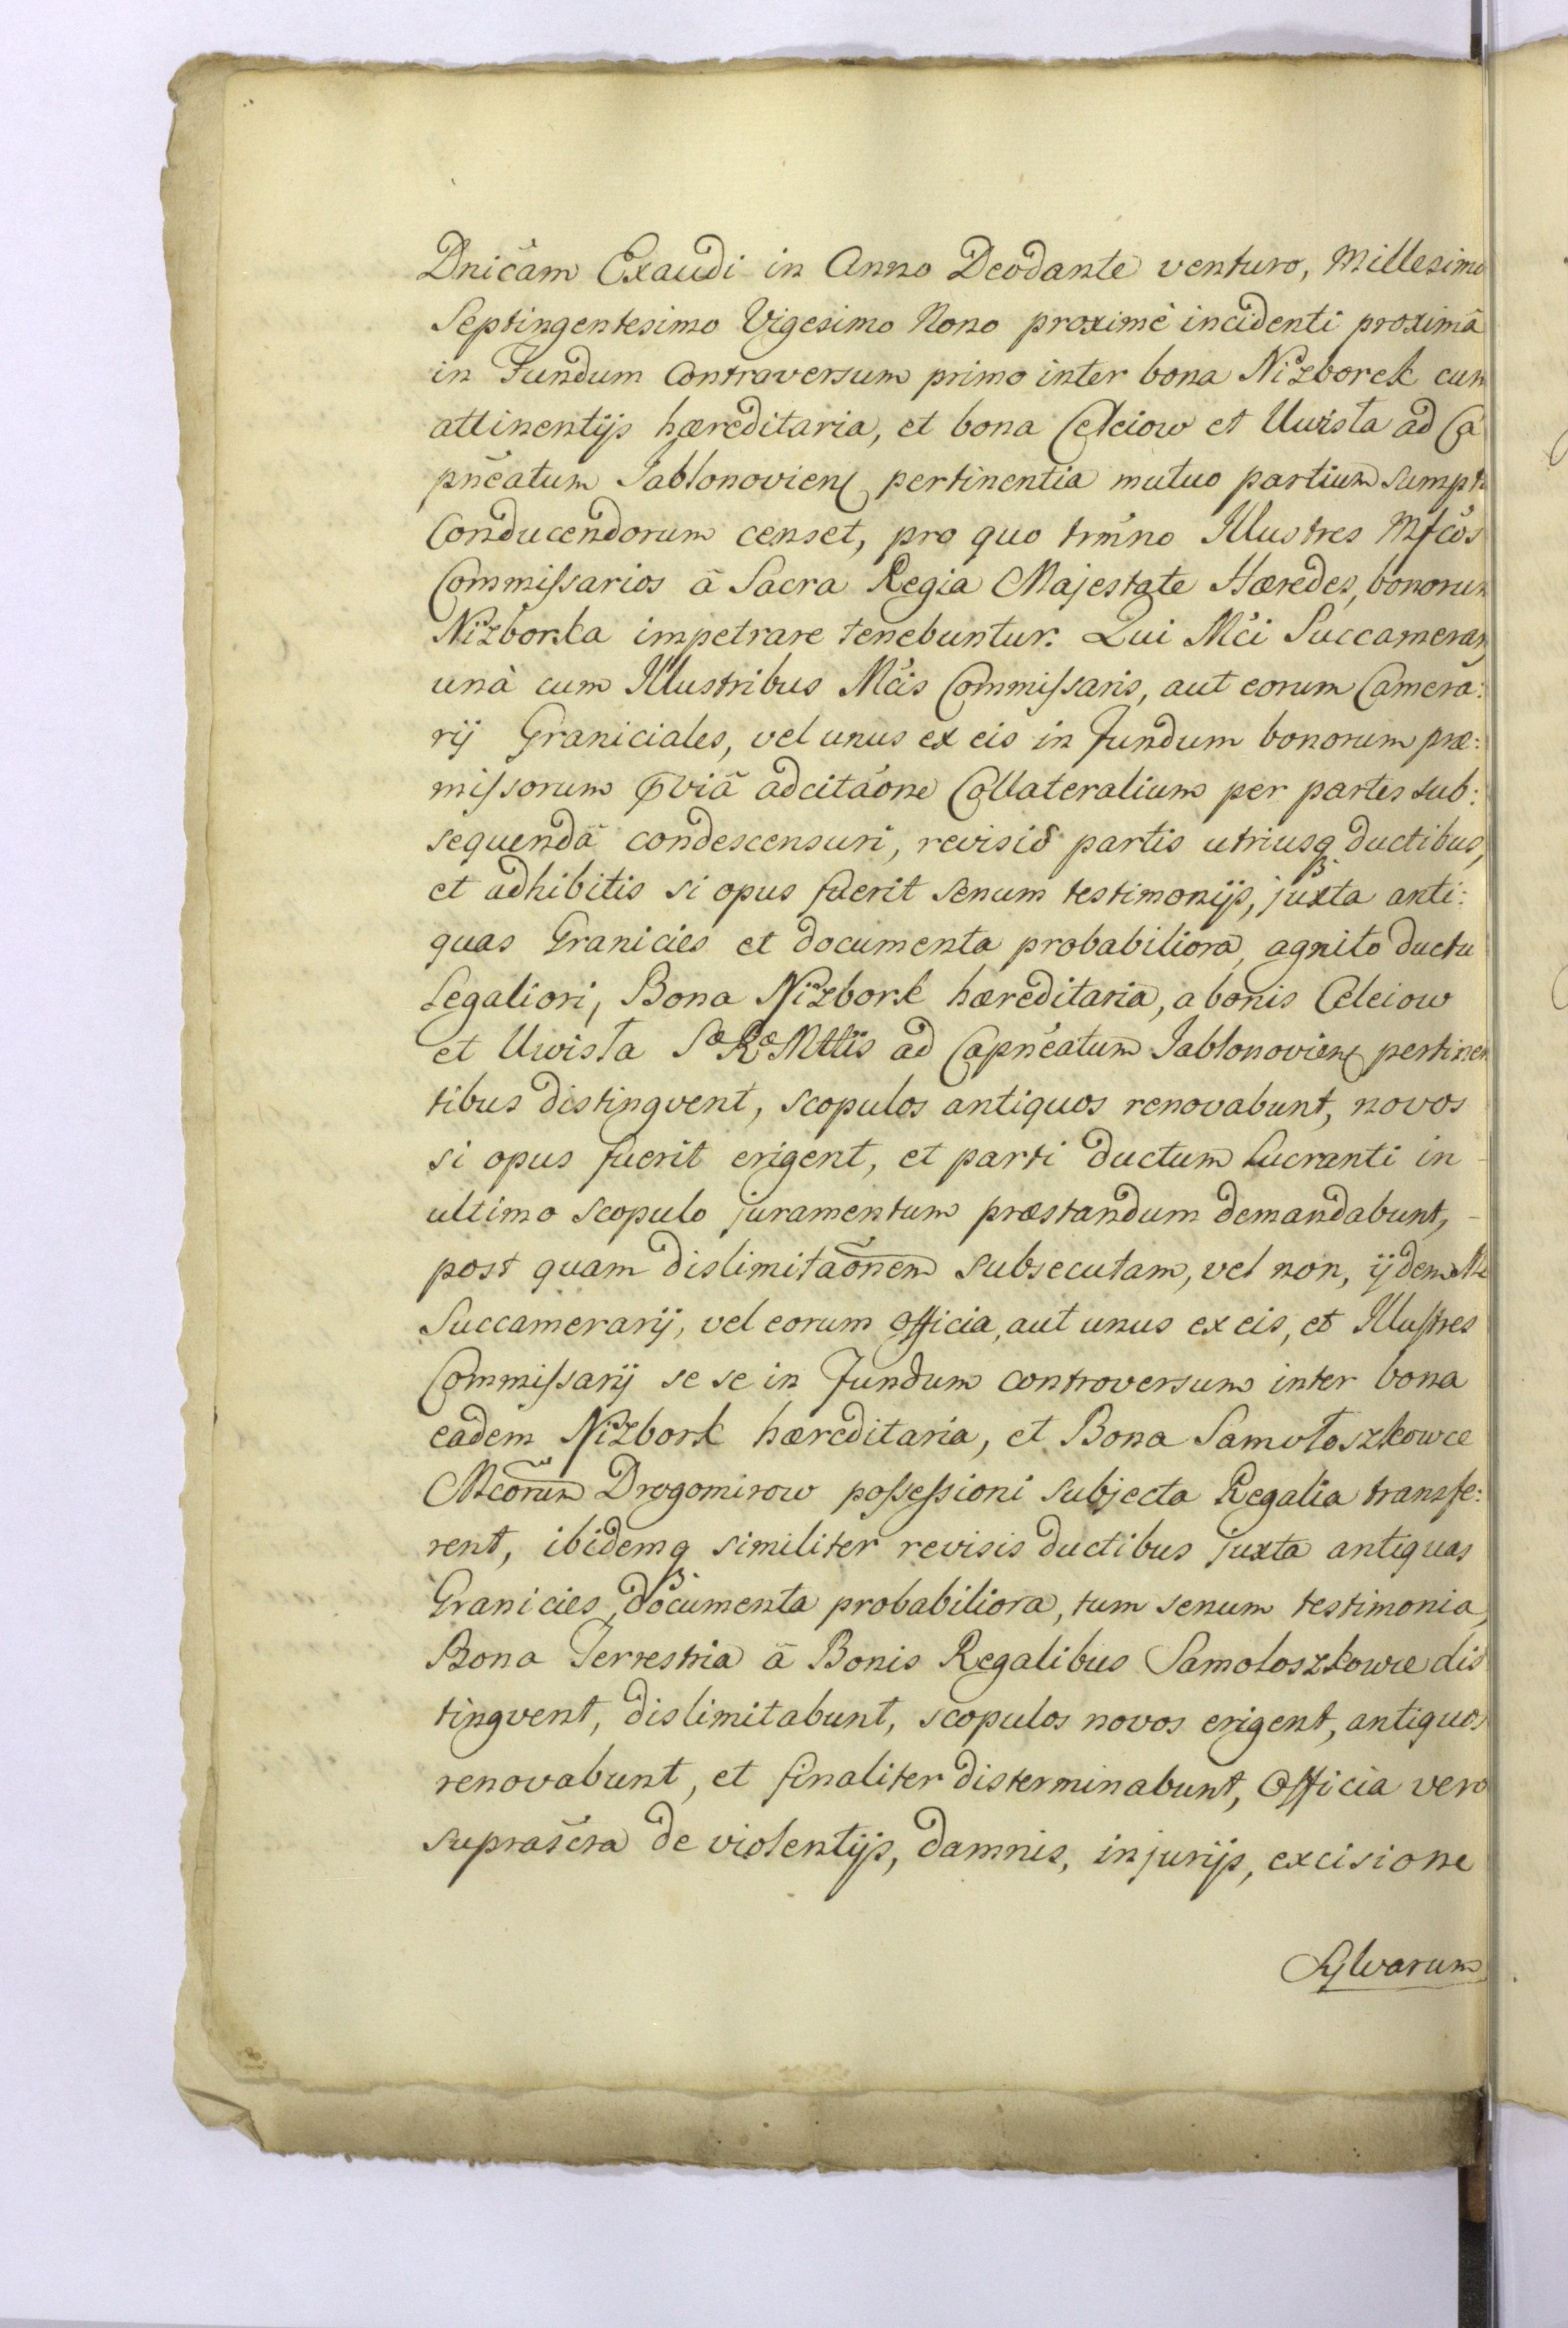 Dnicam Exaudi in Anno Deodante venturo, Millesimo
Septingentesimo Vigesimo Nono proximè incidenti proximã
in Fundum Controversum primo inter bona Niżborek cum
attinentijs hæreditaria, et bona Celeiow et Uwisła ad Ca
pñeatum Jablonovien pertinentia mutuo partium sumptu
Conducendorum censet, pro quo trmno Illustres Mfcos
Commissarios ã Sacra Regia Majestate Hæredes, bonorum
Niżborka impetrare tenebuntur. Qui Mci Succamerarij
unà cum Illustribus Mcis Commissaris, aut eorum Camera:
rij Graniciales, vel unus ex eis in Fundum bonorum præ:
missorum pviã adcitaone Collateralium per partes sub:
sequendã condescensuri, revisis partis utriusq ductibus,
et adhibitis si opus fuerit senum testimonijs, juxta anti:
quas Granicies et documenta probabiliora, agnito ductu
Legaliori, Bona Niżbork hæreditaria, a bonis Celeiow
et Uwisła Sæ Ræ Mttis ad Capñeatum Jablonovien pertinen
tibus distingvent, scopulos antiquos renovabunt, novos
si opus fuerit erigent, et parti ductum Lucranti in
ultimo scopulo juramentum præstandum demandabunt,
post quam dislimitaõnem subsecutam, vel non, ijdem Mci
Succamerarij, vel eorum Officia, aut unus ex eis, et Illustres
Commissarij se se in Fundum controversum inter bona
eadem Niżbork hæreditaria, et Bona Samołoszkowce
Mcorum Drogomirow possessioni subjecta Regalia transfe:
rent, ibidemq similiter revisis ductibus juxta antiquas
Granicies, documenta probabiliora, tum senum testimonia,
Bona Terrestria ã Bonis Regalibus Samołoszkowce dis
tingvent, dislimitabunt, scopulos novos erigent, antiquos
renovabunt, et finaliter disterminabunt, Officia vero
suprascra de violentijs, damnis, injurijs, excisione
Sylvarum